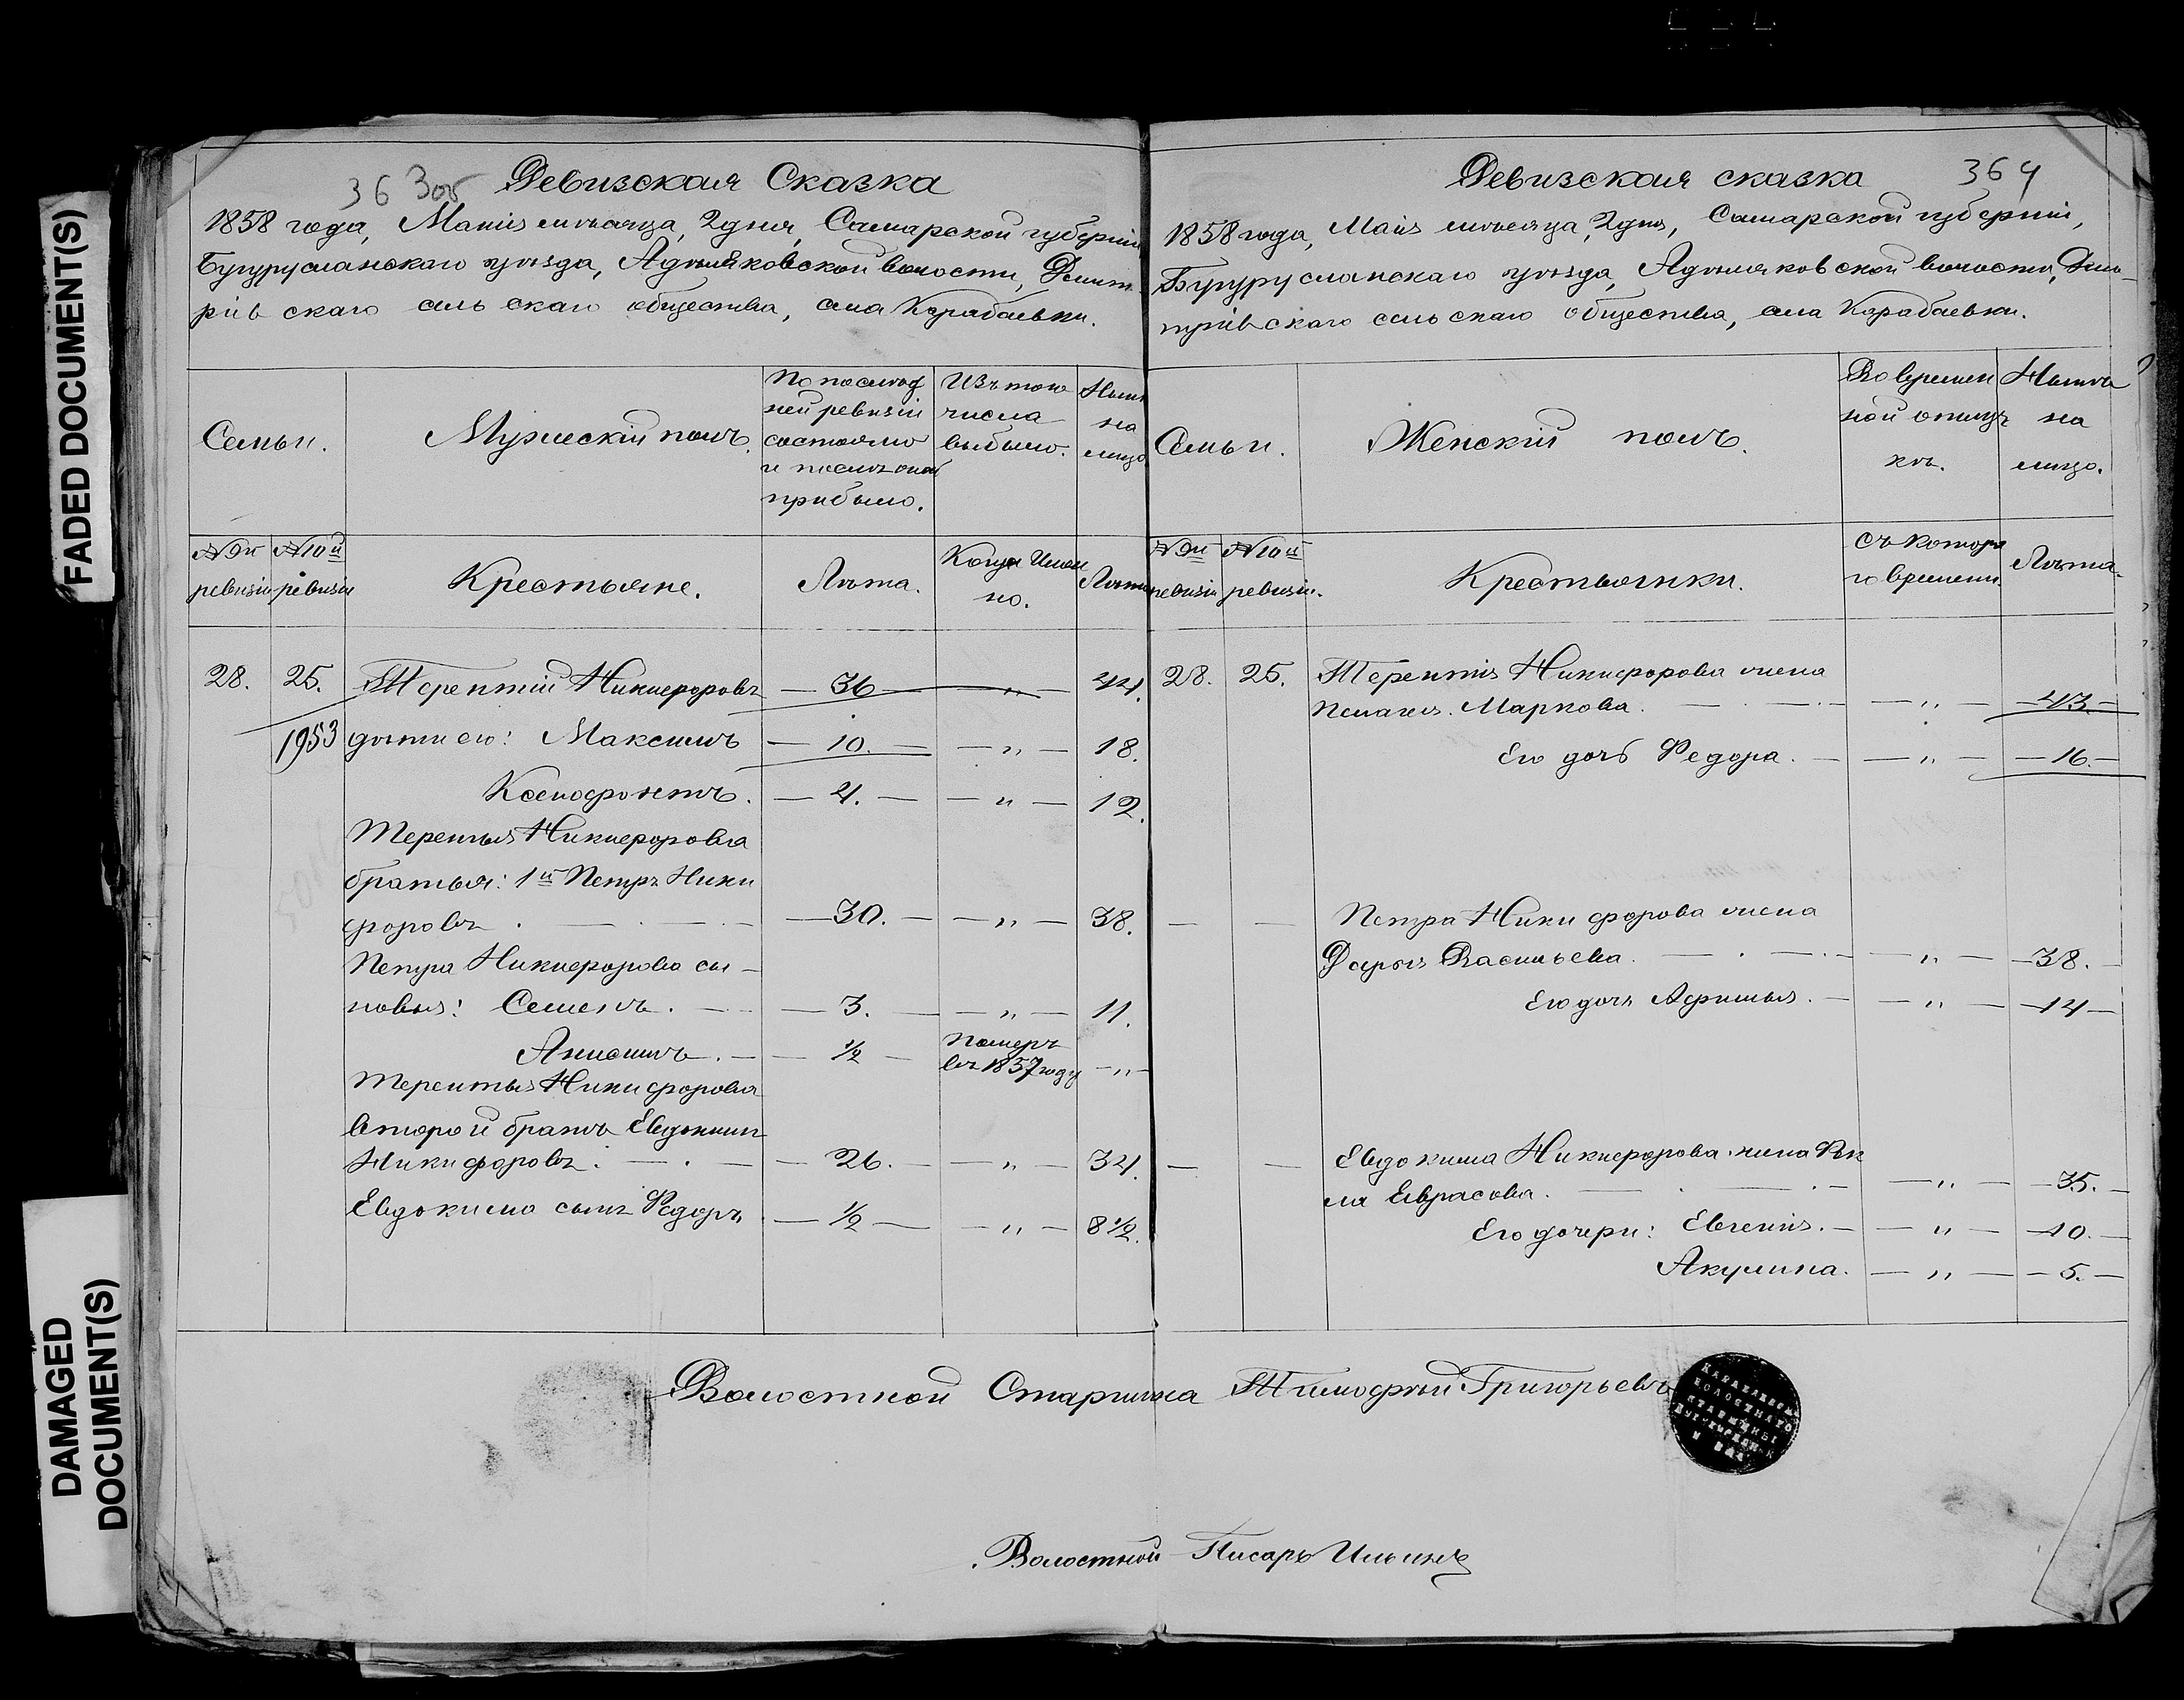 FADED DOCUMENT(S)
DAMAGED
DOCUMENT(S)
363об
Ревизская Сказка
1858 года, Маиія мѣсяца, 2 дня, Самарской губерніи
Бугурусланскаго уѣзда, Адѣляковской волости, Дмит
ріевскаго сельскаго общества, села Карабаевки.
Семьи.
Мужескій полъ.
По послѣд
ней ревизіи
состояло
и послѣ оной
прибыло.
Изъ того
числа
выбыло.
Нынѣ
на
лицо
№ 9й
ревизіи
№ 10й
ревизіи
Крестьяне.
Лѣта.
Когда Имен
но.
Лѣта
28. 25. Терентій Никифоровъ — 36 — „ — 44.
1953 дѣти его: Максимъ — 10. — — „ — 18.
Ксенофонтъ. — 4. — — „ — 12.
Терентья Никифорова
братья: 1й Петръ Ники
форовъ . — 30. — — „ — 38.
Петра Никифорова сы-
новья: Семенъ. — 3. — „ — 11.
Анисимъ. — ½ — Померъ
въ 1857 году — „ —
Терентья Никифорова
второй братъ Евдокимъ
Никифоровъ. — 26. — „ — 34.
Евдокима сынъ Федоръ — ½ — — „ — 8½.
364
Ревизская сказка
1858 года, Маія мѣсяца, 2 дня, Самарской губерніи,
Бугурусланскаго уѣзда, Адѣляковской волости, Дми-
тріевскаго сельскаго общества, села Карабаевки.
Семьи.
Женскій полъ.
Во времен
ной отлуч
кѣ.
Нынѣ
на
лицо.
№ 9й
ревизіи
№ 10й
ревизіи.
Крестьянки.
Съ котора
го времени.
Лѣта.
28. 25. Терентія Никифорова жена
Пелагея Маркова. — „ — 43 —
Его дочь Федора. — — „ — 16. —
Петра Никифорова жена
Дарья Васильева. — „ — 38. —
Его дочь Афимья. — — „ — 14 —
Евдокима Никифорова жена Ѳк
ла Еврасова. — „ — 35. —
Его дочери: Евгенія. — — „ — 10. —
Акулина. — „ — 5. —
Волостной Старшина Тимофѣй Григорьевъ
Волостной Писарь Ильинъ